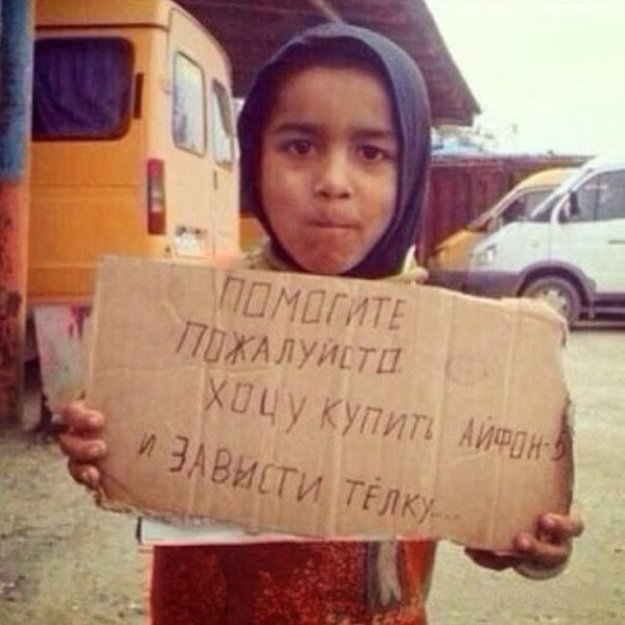 ПОМОГИТЕ
ПОЖАЛУЙСТО
ХОЧУ КУПИТЬ АЙФОН-5
И ЗАВИСТИ ТЁЛКУ...